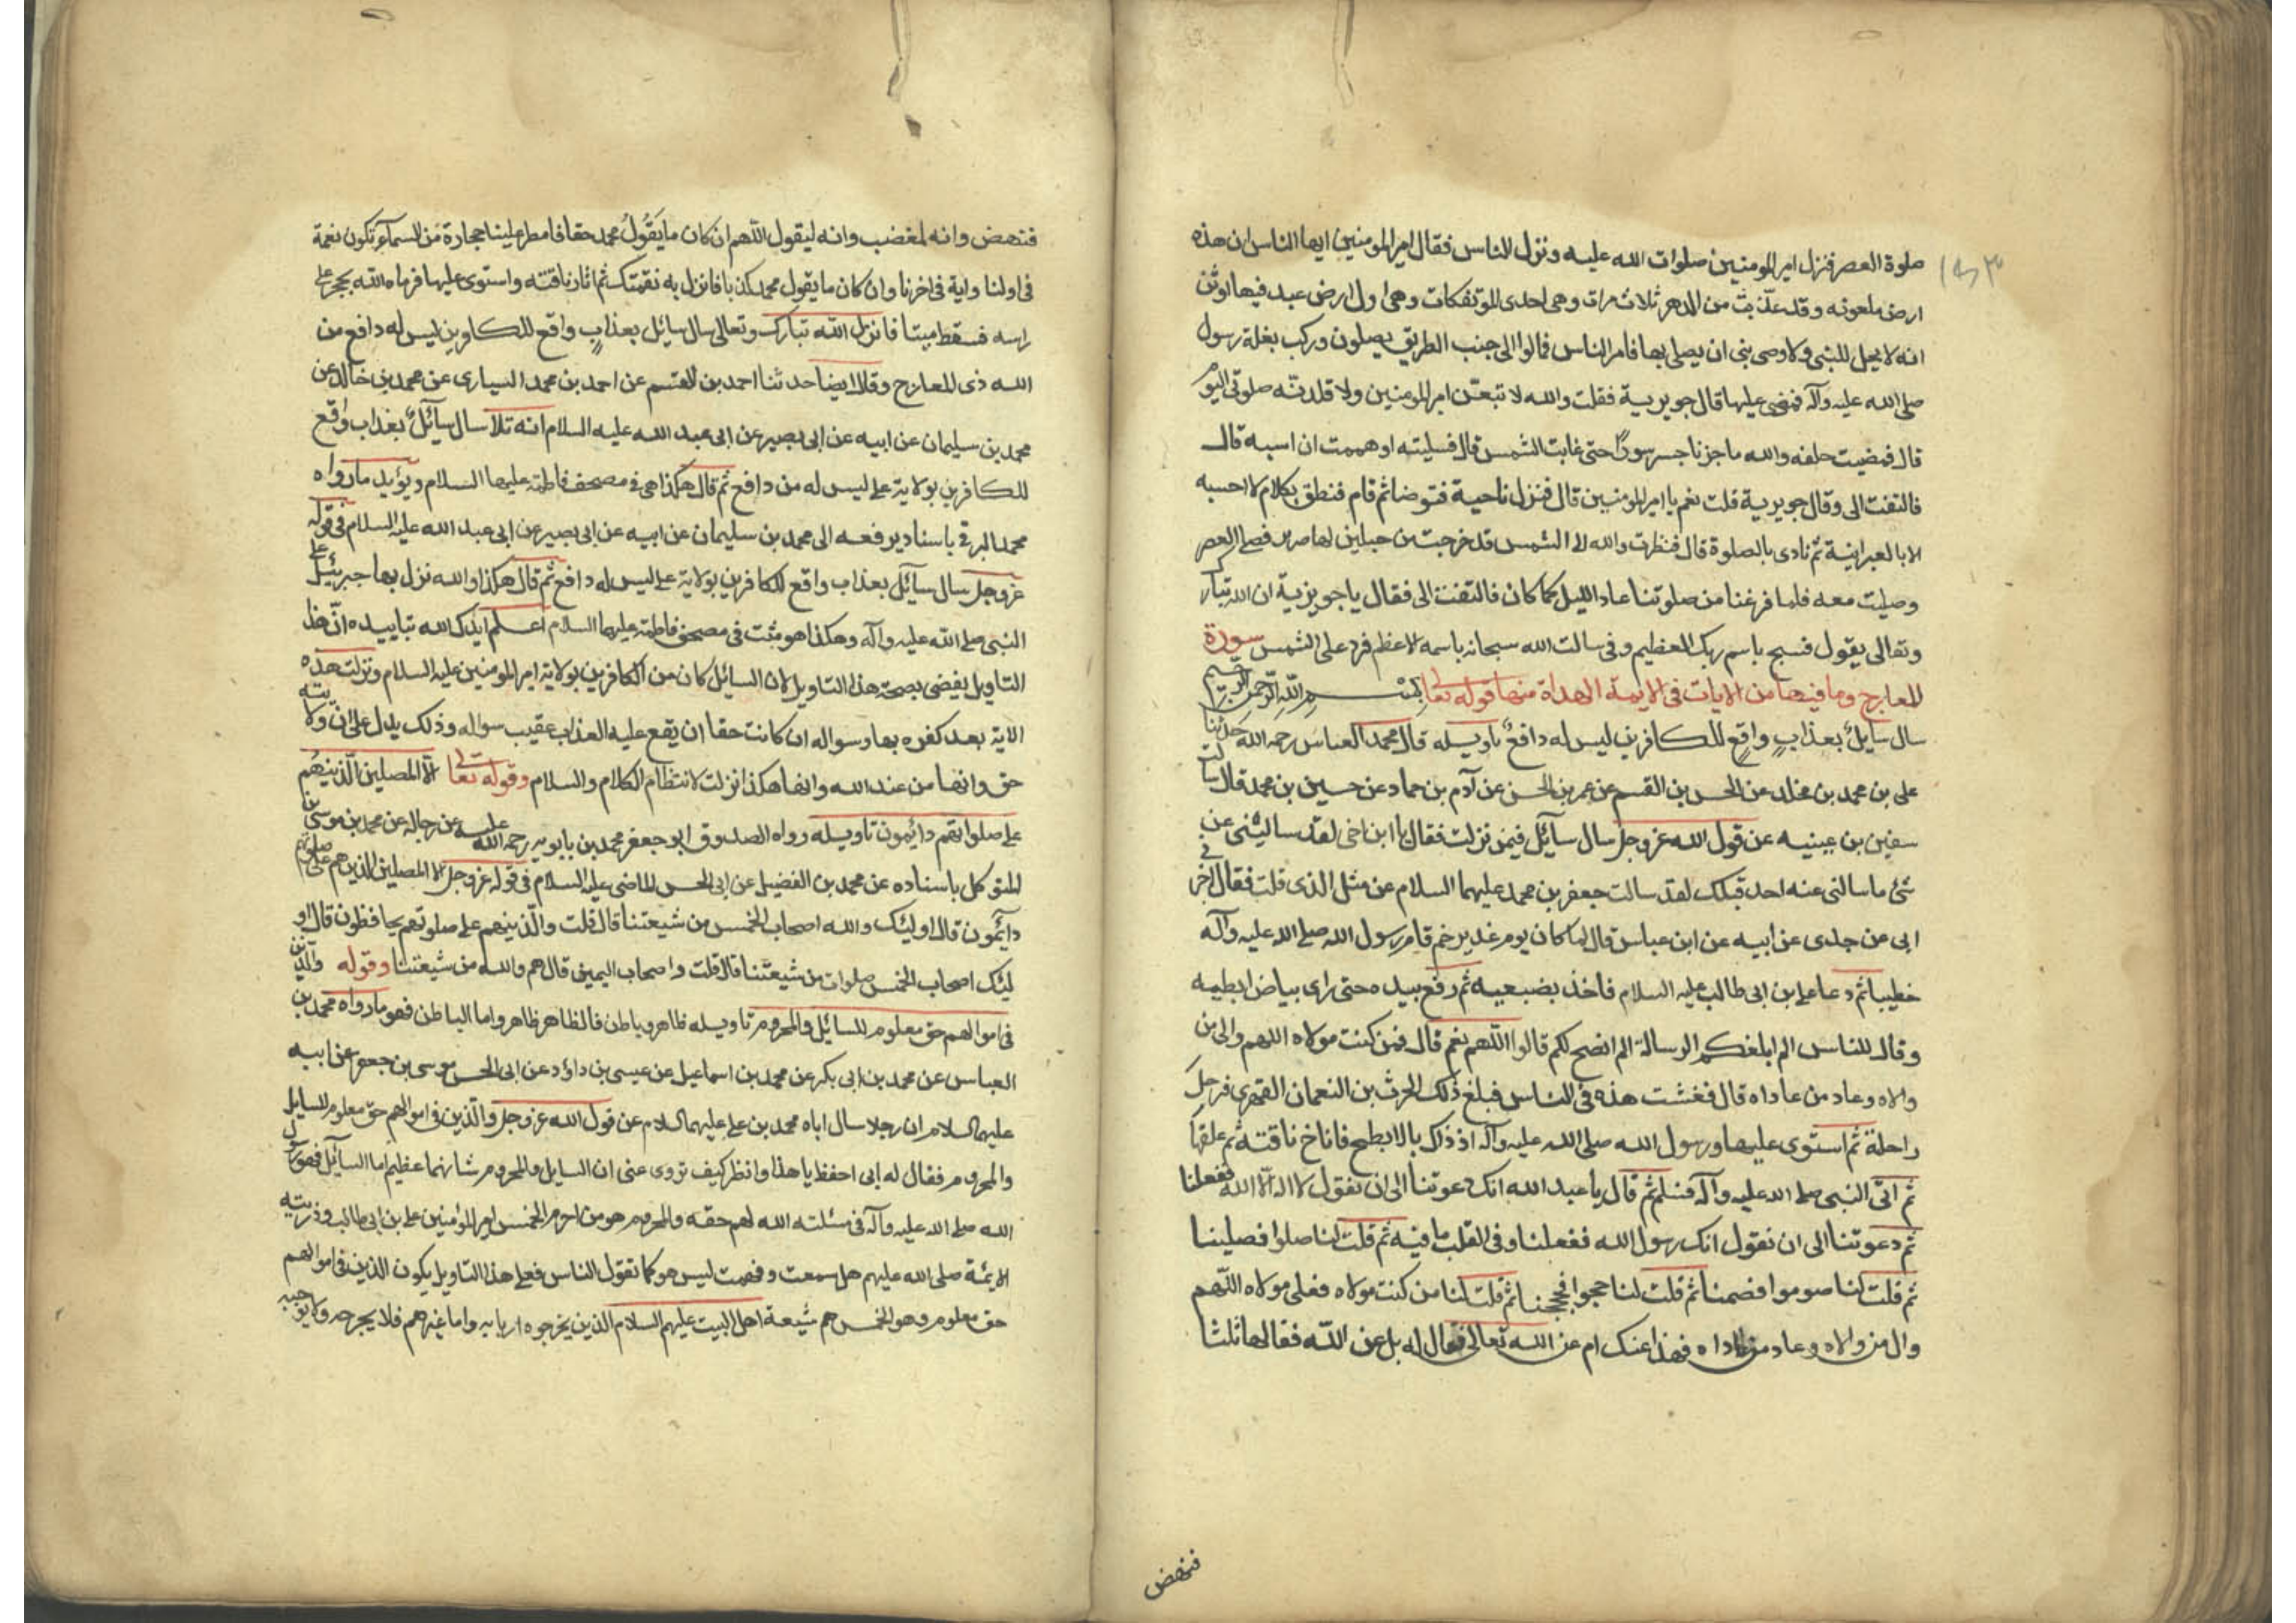 صلوة العصر فنزل امير المومنين صلوات الله عليه ونزل الناس فقال امير المومنين ايها الناس ان هذه
ارض ملعونه وقد عذبت من الدهر ثلاث مرات وهي احدى المؤتفكات وهي اول ارض عبد فيها اوثن
انه لا يحل للنبي ولا وصي بني ان يصلي بها فامر الناس فمالوا الى جنب الطريق يصلون وركب بغلة رسول
صلى الله عليه وآله فمضى عليها قال جويرية فقلت والله لاتبعن امير المومنين ولاقلدنه صلوتي اليوم
قال فمضيت خلفه والله ما جزنا جسر سورا حتى غابت الشمس قال فسليته او هممت ان اسبه قال
فالتفت الى وقال جويرية قلت نعم يا امير المومنين قال فنزل ناحية فتوضا ثم قام فنطق بكلام لا احسبه
الا بالعبرانية ثم نادى بالصلوة قال فنظرت والله الى الشمس قد خرجت من جبلين لها صرير فصلى العصر
وصليت معه فلما فرغنا من صلوتنا عاد الليل كما كان فالتفت الى فقال يا جويرية ان الله تبار
وتعالى يقول فسبح باسم ربك العظيم وفى سالت الله سبحانه باسمه الاعظم فرد على الشمس سورة
المعارج وما فيها من الايات فى الايمة الهداة منها قوله تعالى بسم الله الرحمن الرحيم
سال سايل بعذاب واقع للكافرين ليس له دافع تاويله قال محمد العباس رحمه الله حدثنا
على بن محمد بن مخلد عن الحسن بن القسم عن عمر بن الحسن عن آدم بن حماد عن حسين بن محمد قال سالت
سفين بن عيينه عن قول الله عز وجل سال سآئل فيمن نزلت فقال يا ابن اخى لقد سالتنى عن
شئ ما سالنى عنه احد قبلك لقد سالت جعفر بن محمد عليهما السلام عن مثل الذى قلت فقال اخبرنى
ابى عن جدى عن ابيه عن ابن عباس قال لما كان يوم غدير خم قام رسول الله صلى الله عليه وآله
خطيبا ثم دعا على بن ابى طالب عليه السلام فاخذ بضبعيه ثم رفع بيده حتى راى بياض ابطيه
وقال للناس الم ابلغكم الرسالة الم انصح لكم قالوا اللهم نعم قال فمن كنت مولاه اللهم وال من
والاه وعاد من عاداه قال فغشت هذه فى الناس فبلغ ذلك الحرث بن النعمان الفهرى فرحل
راحلة ثم استوى عليها ورسول الله صلى الله عليه وآله اذ ذاك بالابطح فاناخ ناقته ثم علقها
ثم اتى النبى صلى الله عليه وآله فسلم ثم قال يا عبد الله انك دعوتنا الى ان نقول لا اله الا الله ففعلنا
ثم دعوتنا الى ان نقول انك رسول الله ففعلنا وفى القلب ما فيه ثم قلت لنا صلوا فصلينا
ثم قلت لنا صوموا فصمنا ثم قلت لنا حجوا فحججنا ثم قلت لنا من كنت مولاه فعلى مولاه اللهم
وال من والاه وعاد من عاداه فهذا عنك ام عن الله تعالى فقال له بل عن الله فقالها ثلثا
فنهض
فنهض وانه لمغضب وانه ليقول اللهم ان كان ما يقول محمد حقا فامطر علينا حجارة من السماء تكون نقمة
فى اولنا واية فى اخرنا وان كان ما يقول محمد كذبا فانزل به نقمتك ثم اثار ناقته واستوى عليها فرماه الله بحجر على
راسه فسقط ميتا فانزل الله تبارك وتعالى سال سائل بعذاب واقع للكاورين ليس له دافع من
الله ذى المعارج وقال ايضا حدثنا احمد بن القسم عن احمد بن محمد السيارى عن محمد بن خالد عن
محمد بن سليمان عن ابيه عن ابى بصير عن ابى عبد الله عليه السلام انه تلا سال سآئل بعذاب واقع
للكافرين بولاية على ليس له من دافع ثم قال هكذا هى فى مصحف فاطمة عليها السلام ويؤيد ما رواه
محمد البرقى باسناد يرفعه الى محمد بن سليمان عن ابيه عن ابى بصير عن ابى عبد الله عليه السلام فى قوله
عز وجل سال سآئل بعذاب واقع للكافرين بولاية على ليس له دافع ثم قال هكذا والله نزل بها جبرئيل على
النبى صلى الله عليه وآله وهكذا هو مثبت فى مصحف فاطمة عليها السلام اعلم ايدك الله بتاييده ان هذا
التاويل يفضى بصحة هذا التاويل لان السايل كان من الكافرين بولاية امير المومنين عليه السلام ونزلت هذه
الاية بعد كفره بها وسواله ان كانت حقا ان يقع عليه العذاب عقيب سواله وذلك يدل على ان ولايته
حق وانها من عند الله وانها هكذا نزلت لانتظام الكلام والسلام وقوله تعالى الا المصلين الذينهم
على صلواتهم دايمون تاويله رواه الصدوق ابو جعفر محمد بن بابويه رحمه الله عليه عن رجاله عن محمد بن موسى بن
المتوكل باسناده عن محمد بن الفضيل عن ابى الحسن الماضى عليه السلام فى قوله عز وجل الا المصلين الذين هم على صلوتهم
دآئمون قال اولئك والله اصحاب الخمس من شيعتنا قال قلت والذينهم على صلوتهم يحافظون قال او
لئك اصحاب الخمس صلوات من شيعتنا قال قلت واصحاب اليمين قال هم والله من شيعتنا وقوله والذين
فى اموالهم حق معلوم للسائل والمحروم تاويله ظاهر وباطن فالظاهر ظاهر واما الباطن فهو ما رواه محمد بن
العباس عن محمد بن ابى بكر عن محمد بن اسماعيل عن عيسى بن داؤد عن ابى الحسن موسى بن جعفر عن ابيه
عليهما السلام ان رجلا سال اباه محمد بن على عليهما السلام عن قول الله عز وجل والذين فى اموالهم حق معلوم للسايل
والمحروم فقال له ابى احفظ يا هذا وانظر كيف تروى عنى ان السايل والمحروم شانهما عظيم اما السآئل فهو رسول
الله صلى الله عليه وآله فى مسئلته الله لهم حقه والمحروم هو من احرم الخمس امير المؤمنين على بن ابى طالب وذريته
الايمة صلى الله عليهم هل سمعت وفهمت ليس هو كما تقول الناس فعلى هذا التاويل يكون الذين فى اموالهم
حق معلوم وهو الخمس هم شيعة اهل البيت عليهم السلام الذين يخرجوه اربابه واما غيرهم فلا يخرجه ولا يوجبه